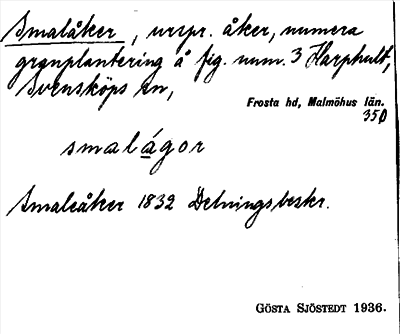 Smalåker, urspr. åker, numera
granplantering å fig. num. 3 Harphult,
Svensköps sn,
Frosta hd, Malmöhus län.
350
smalágor
Smaleåker 1832 Delningsbeskr.
GÖSTA SJÖSTEDT 1936.